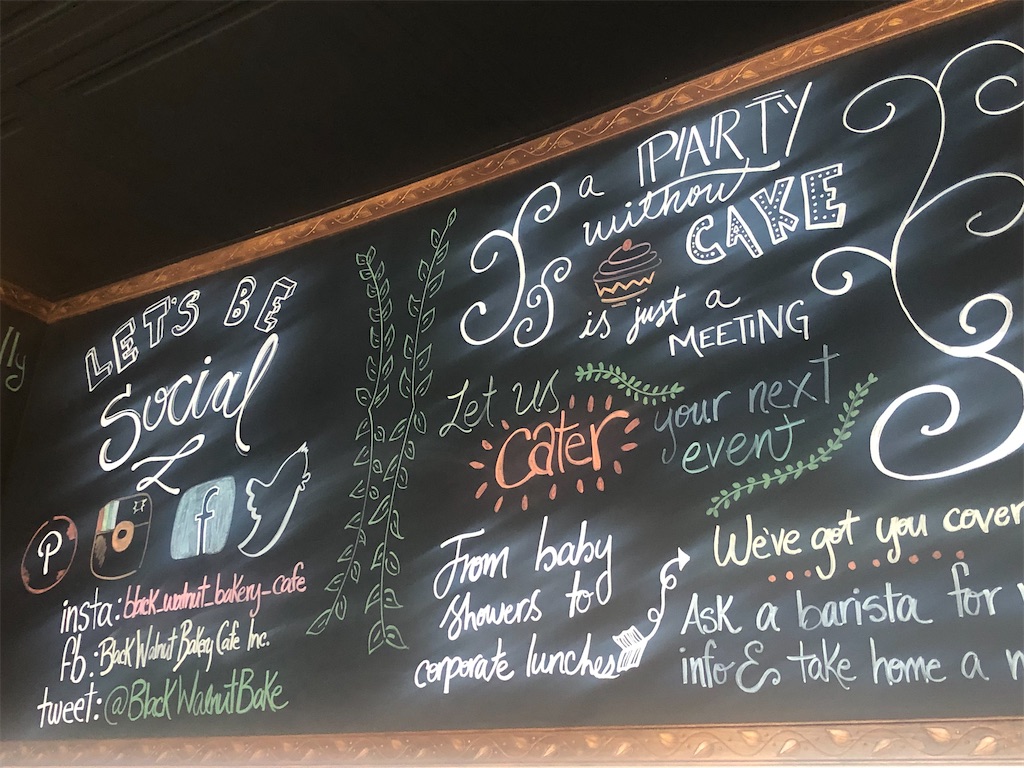 lly
LET'S BE
Social
insta: black_walnut_bakery_cafe
fb: Black Walnut Bakery Cafe Inc.
tweet: @BlackWalnutBake
a PARTY
without
CAKE
is just a
MEETING
Let us
cater
your next
event
From baby
showers to
corporate lunches
We've got you cover
Ask a barista for
info & take home a